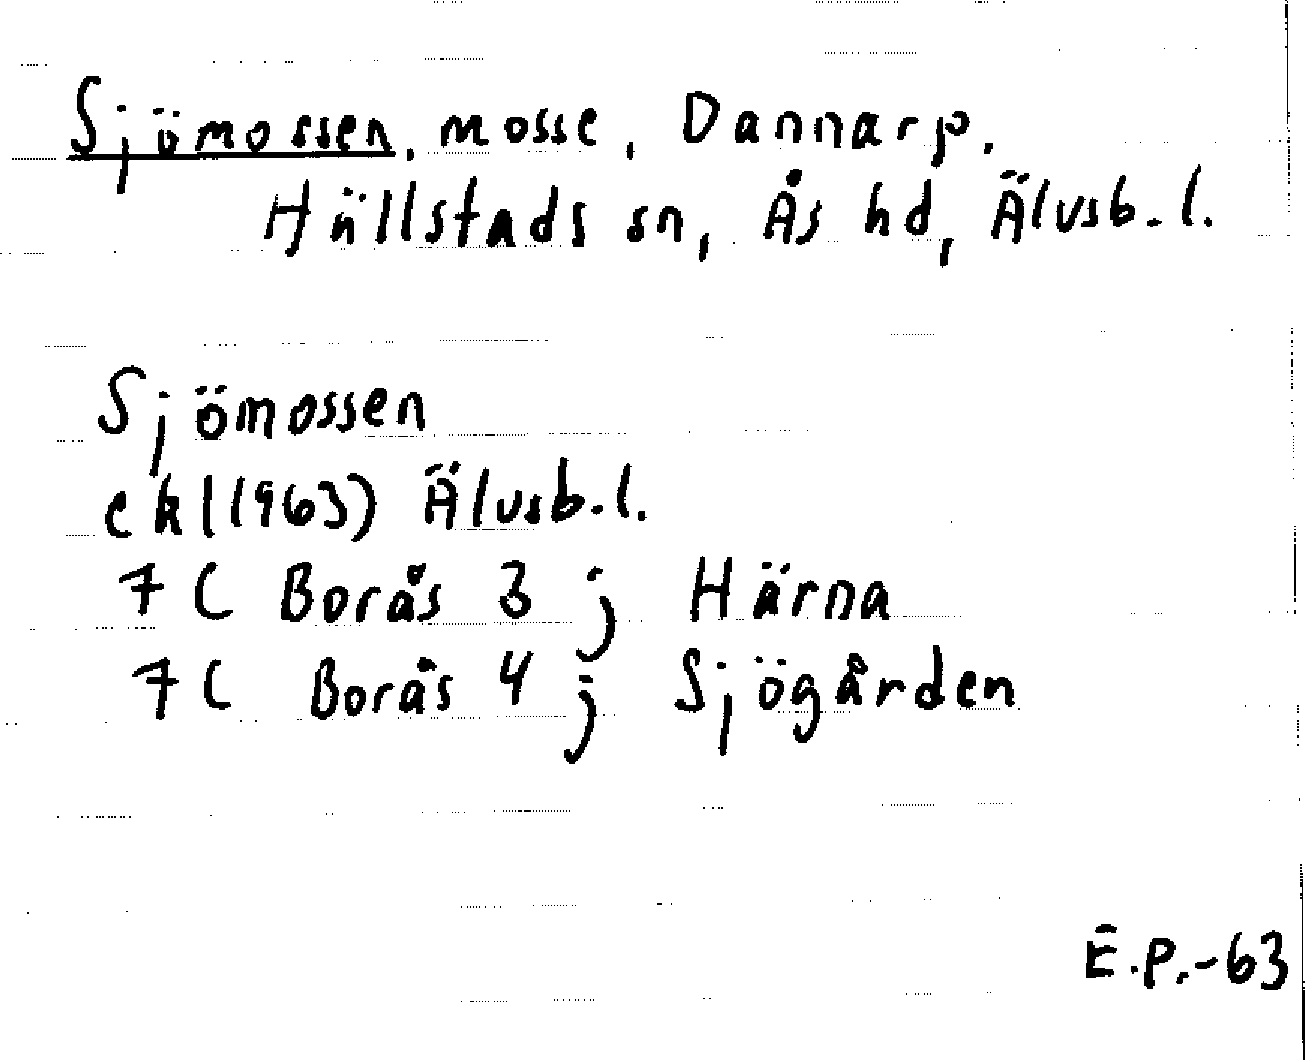 Sjömossen, mosse, Dannarp,
Hällstads sn, Ås hd, Älvsb. l.
Sjömossen
ekl (1963) Älvsb. l.
7C Borås 3 j Härna
7C Borås 4 j Sjögården
E.P.-63